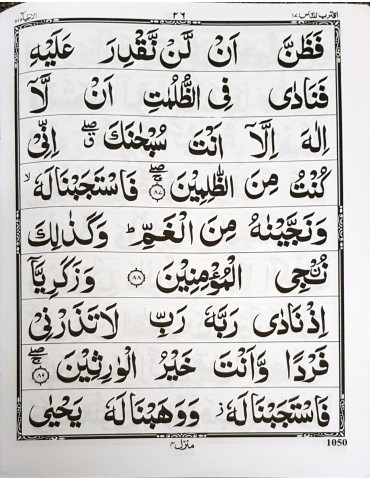 اقترب للناس ١٧ ٢٦
فَظَنَّ اَنْ لَّنْ نَّقْدِرَ عَلَيْهِ
فَنَادٰى فِى الظُّلُمٰتِ اَنْ لَّاۤ
اِلٰهَ اِلَّاۤ اَنْتَ سُبْحٰنَكَ ۖق اِنِّىْ
كُنْتُ مِنَ الظّٰلِمِيْنَ ۚۖ ﴿٨٧﴾ فَاسْتَجَبْنَا لَهٗ ۙ
وَنَجَّيْنٰهُ مِنَ الْغَمِّ ؕ وَكَذٰلِكَ
نُـْۨجِى الْمُؤْمِنِيْنَ ﴿٨٨﴾ وَزَكَرِيَّاۤ
اِذْ نَادٰى رَبَّهٗ رَبِّ لَا تَذَرْنِىْ
فَرْدًا وَّاَنْتَ خَيْرُ الْوٰرِثِيْنَ ۚۖ ﴿٨٩﴾
فَاسْتَجَبْنَا لَهٗ ز وَوَهَبْنَا لَهٗ يَحْيٰى
منزل ٤ 1050